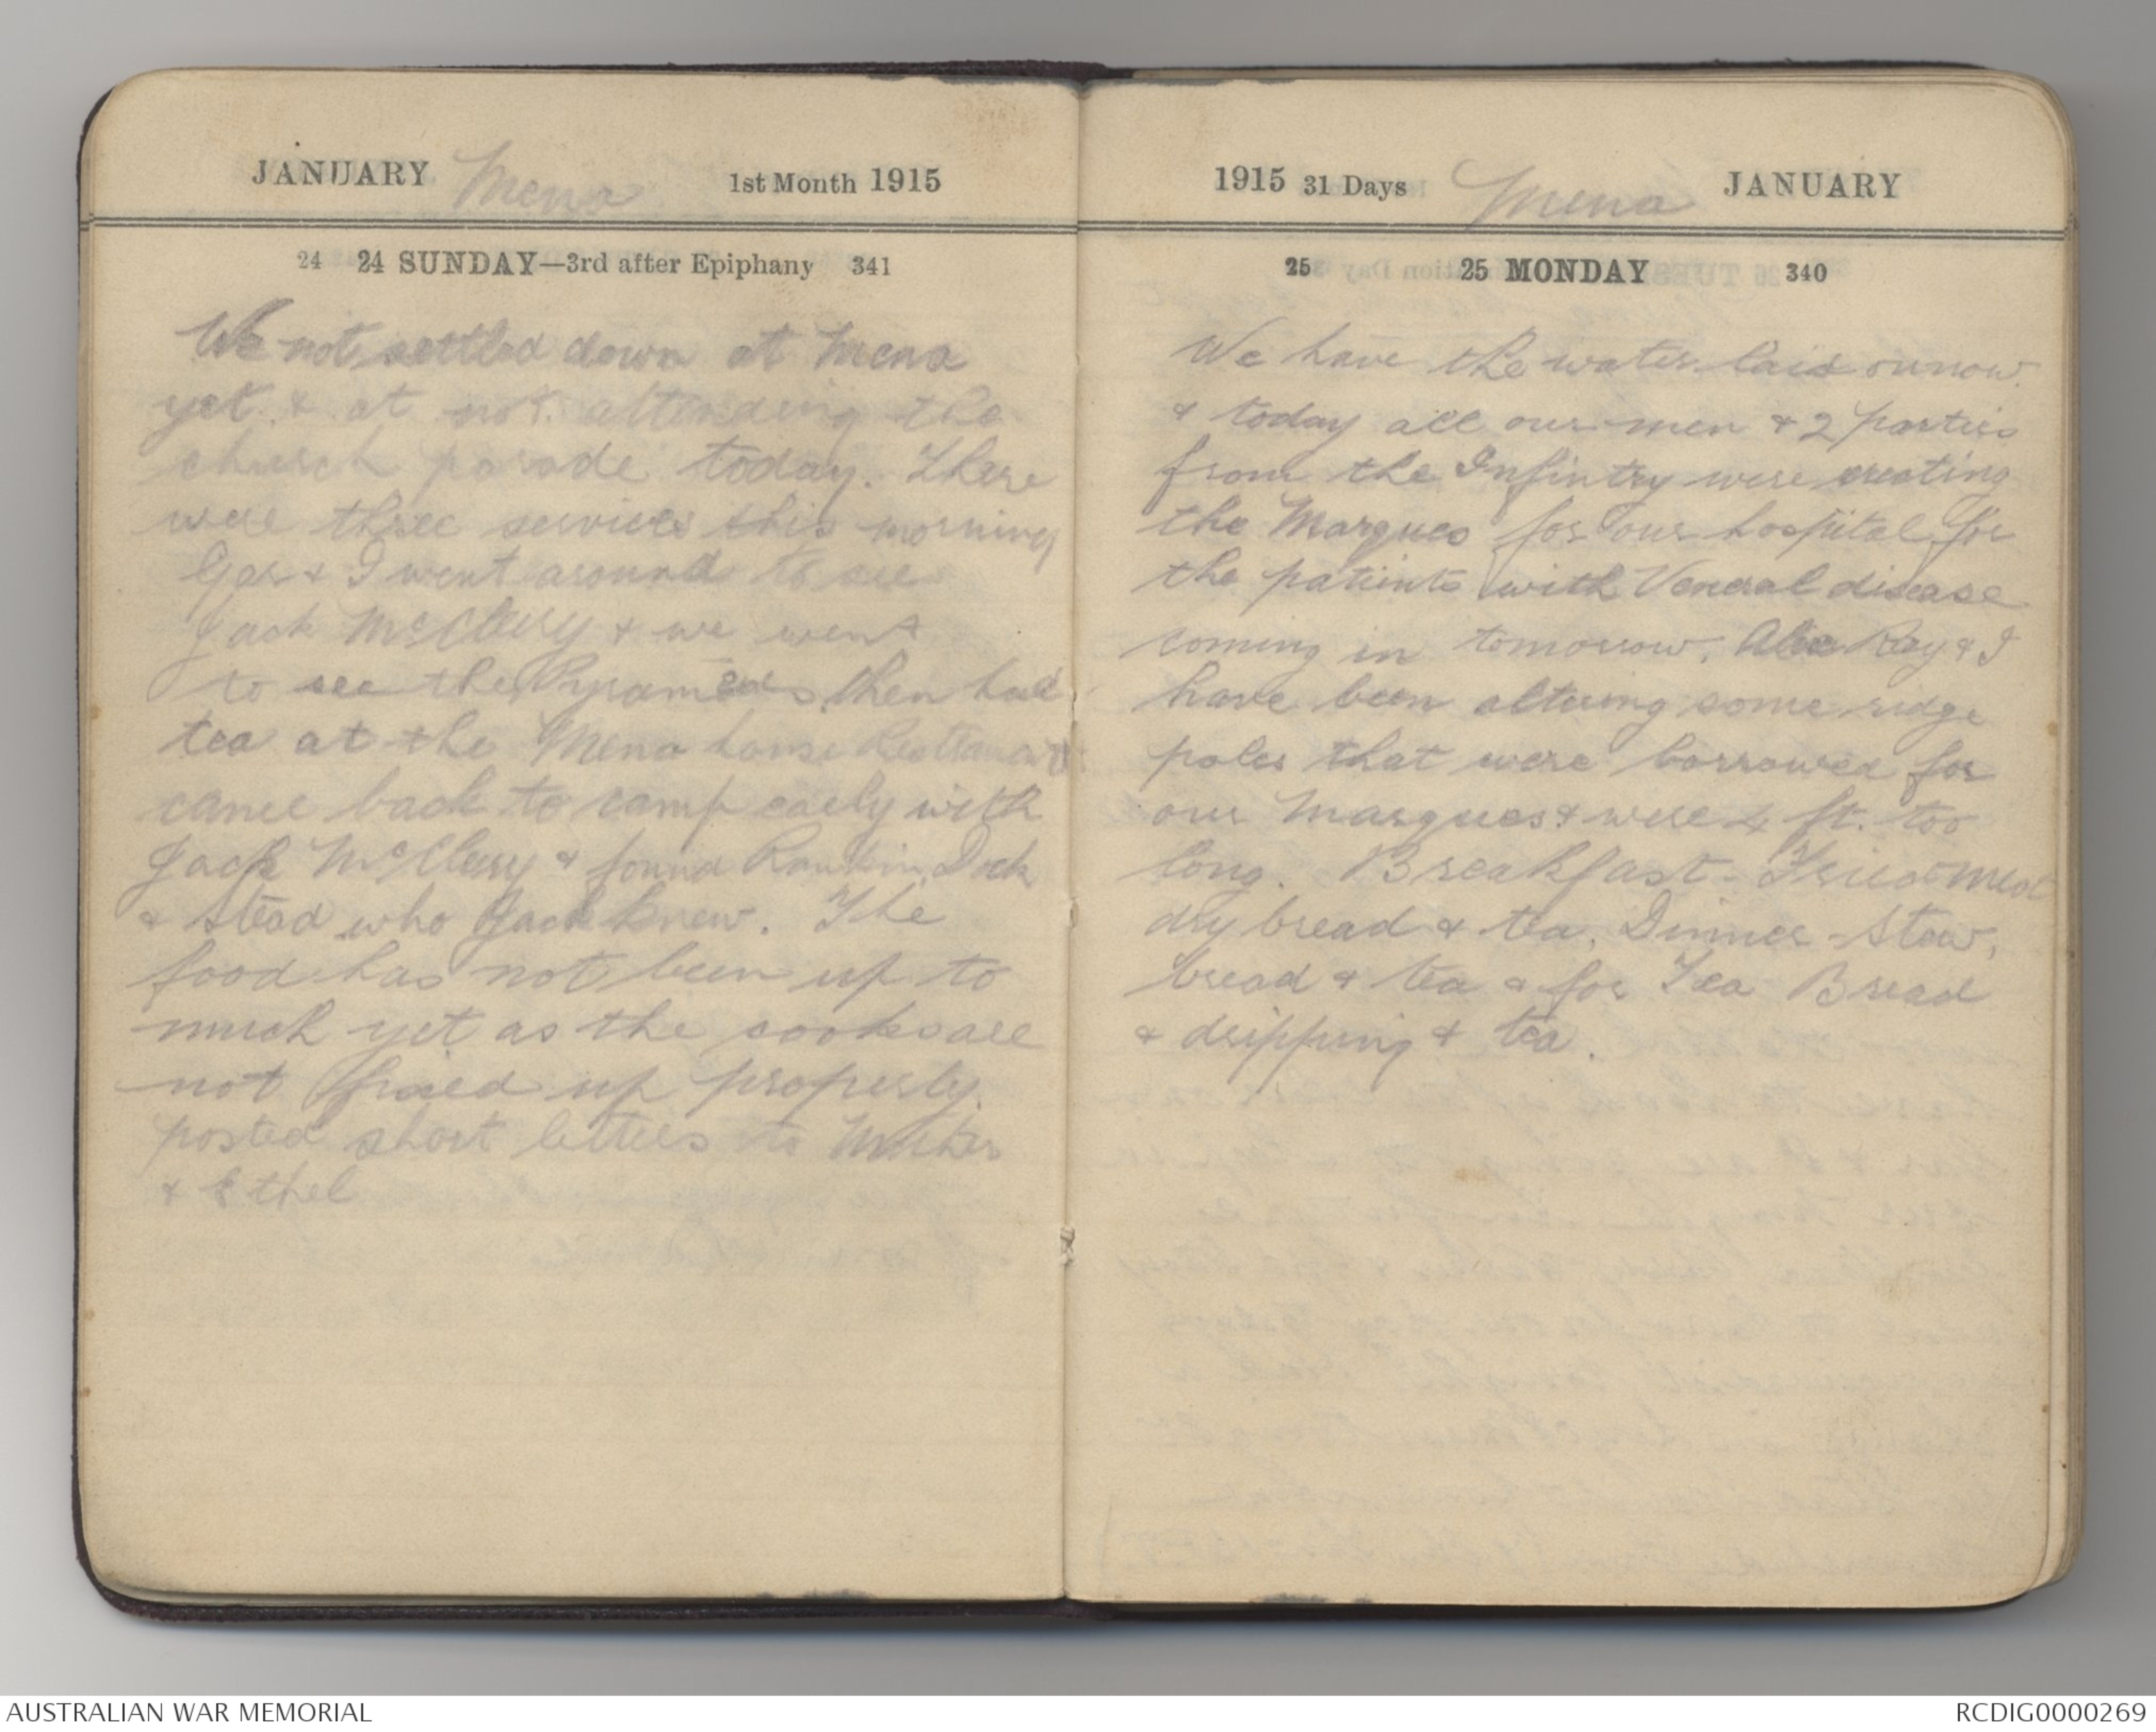 JANUARY Mena 1st Month 1915
24 24 SUNDAY—3rd after Epiphany 341
We not settled down at Mena
yet. & at not attending the
church parade today. There
were three services this morning
& I went around to see
Jack McCleery & we went
to see the Pyrameds, then had
tea at the Mena house
came back to camp early with
Jack McCleery & found Rankin, Dock
& Stead who Jack knew. The
food has not been up to
much yet as the cooks are
not fixed up properly.
posted short letters to Mother
& Ethel
1915 31 Days Mena JANUARY
25 25 MONDAY 340
We have the water laid on now.
& today all our men & 2 parties
from the Infintry were creating
the Marques for our hospital for
the patients with Veneral disease
coming in tomorrow. Ray & I
have been altering some ridge
poles that were borrowed for
our Marques & were 4 ft. too
long. Breakfast - Fried meat
dry bread & tea. Dinner - Stew,
bread & tea & for Tea Bread
& dripping & tea.
AUSTRALIAN WAR MEMORIAL
RCDIG0000269